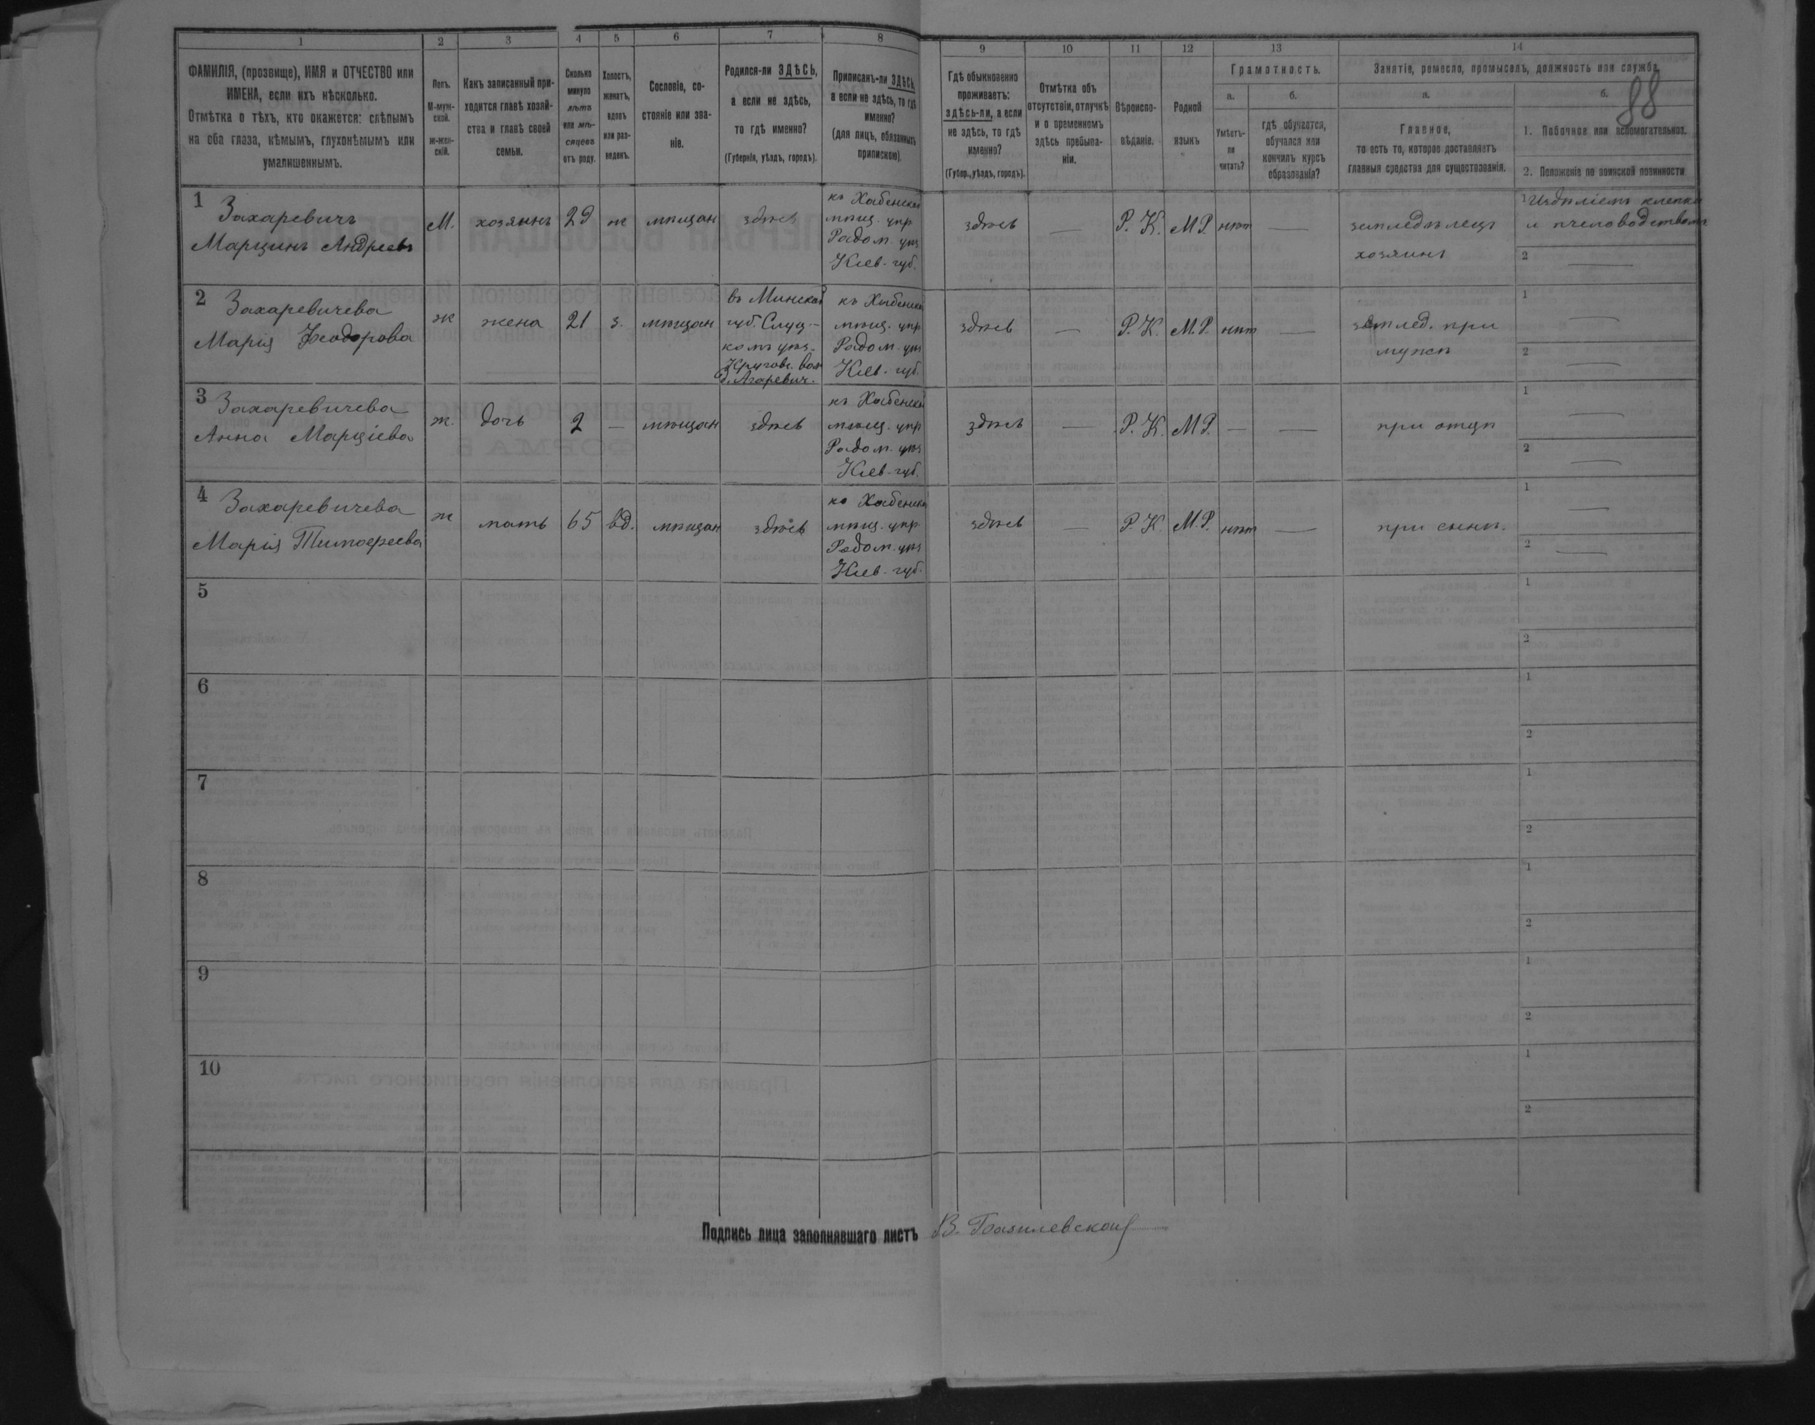 1 2 3 4 5 6 7 8 9 10 11 12 13 14
ФАМИЛІЯ, (прозвище), ИМЯ и ОТЧЕСТВО или
ИМЕНА, если ихъ нѣсколько.
Отмѣтка о тѣхъ, кто окажется: слѣпымъ
на оба глаза, нѣмымъ, глухонѣмымъ или
умалишеннымъ.
Полъ.
М-муж-
ской.
ж-жен-
скій.
Какъ записанный при-
ходится главѣ хозяй-
ства и главѣ своей
семьи.
Сколько
минуло
лѣтъ
или мѣ-
сяцевъ
отъ роду.
Холостъ,
женатъ,
вдовъ
или раз-
веденъ.
Сословіе, со-
стояніе или зва-
ніе.
Родился-ли ЗДѢСЬ,
а если не здѣсь,
то гдѣ именно?
(Губернія, уѣздъ, городъ).
Приписанъ-ли ЗДѢСЬ,
а если не здѣсь, то гдѣ
именно?
(для лицъ, обязанныхъ
припискою).
Гдѣ обыкновенно
проживаетъ:
здѣсь-ли, а если
не здѣсь, то гдѣ
именно?
(Губер., уѣздъ, городъ).
Отмѣтка объ
отсутствіи, отлучкѣ
и о временномъ
здѣсь пребыва-
ніи.
Вѣроиспо-
вѣданіе.
Родной
языкъ
Грамотность.
а.
Умѣетъ-
ли
читать?
б.
гдѣ обучается,
обучался или
кончилъ курсъ
образованія?
Занятіе, ремесло, промыселъ, должность или служба.
88
а.
Главное,
то есть то, которое доставляетъ
главныя средства для существованія.
б.
1. Побочное или вспомогательное.
2. Положеніе по воинской повинности
1 Захаревичъ
Марцинъ Андреевъ
М.
хозяинъ
29
ж
мѣщан
здѣсь
къ Хабенской
мѣщ. упр
Радом. уѣз
Кіев. губ.
здѣсь
—
Р. К.
М.Р.
нѣт
—
земледѣлецъ
хозяинъ
1 Издѣліемъ клепки
и пчеловодствомъ
2 —
2 Захаревичева
Марія Ѳеодорова
ж
жена
21
з.
мѣщан
въ Минской
губ. Слуц-
комъ уѣз.
Кругов. вол
д. Агаревич.
къ Хабенской
мѣщ. упр
Радом. уѣз
Кіев. губ.
здѣсь
—
Р. К.
М.Р.
нѣт
—
землед. при
мужѣ
1
—
2
—
3 Захаревичева
Анна Марціева
ж.
дочь
2
—
мѣщан
здѣсь
къ Хабенской
мѣщ. упр
Радом. уѣз
Кіев. губ.
здѣсь
—
Р. К.
М.Р.
—
—
при отцѣ
1
—
2
—
4 Захаревичева
Марія Тимоѳеева
ж
мать
65
вд.
мѣщан
здѣсь
къ Хабенской
мѣщ. упр
Радом. уѣз
Кіев. губ.
здѣсь
—
Р. К.
М.Р.
нѣт
—
при сынѣ.
1
—
2
—
5
1
2
6
1
2
7
1
2
8
1
2
9
1
2
10
1
2
Подпись лица заполнявшаго листъ В. Базилевскій